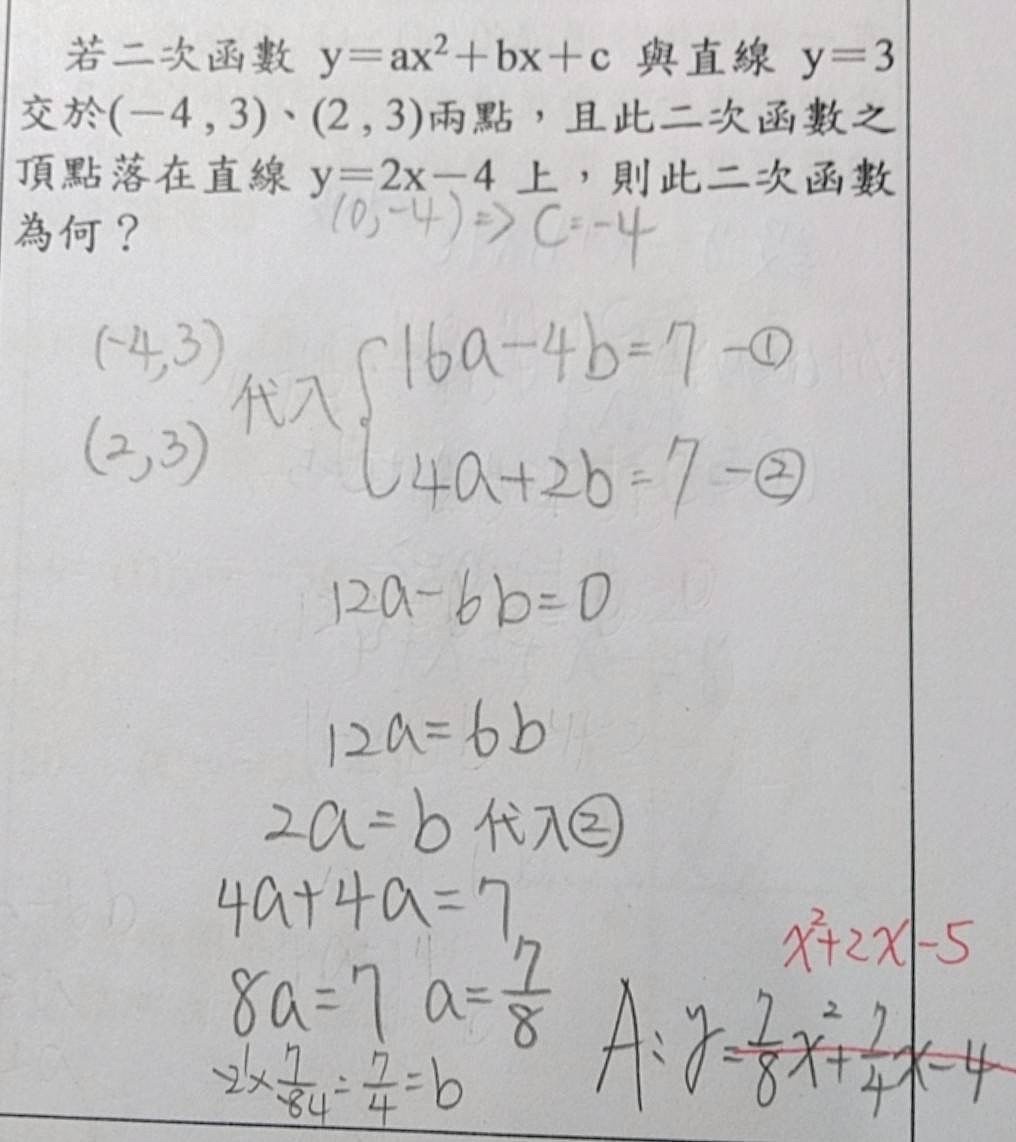 若二次函數 y=ax²+bx+c 與直線 y=3
交於(-4,3)、(2,3)兩點,且此二次函數之
頂點落在直線 y=2x-4 上,則此二次函數
為何?
(0,-4) => C=-4
(-4,3)
(2,3)
代入
16a-4b=7 -①
4a+2b=7 -②
12a-6b=0
12a=6b
2a=b 代入②
4a+4a=7
8a=7 a=7/8
7/4=b
x²+2x-5
A: y=7/8x²+7/4x-4